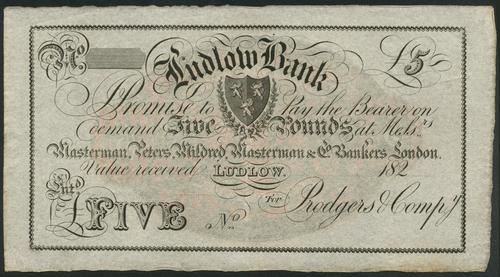 No
Ludlow Bank
£5
Promise to Pay the Bearer on
demand Five Pounds at Messrs.
Masterman, Peters, Mildred, Masterman & Co. Bankers London.
Value received LUDLOW. 182
Entd
For Rodgers & Compy
£FIVE No.